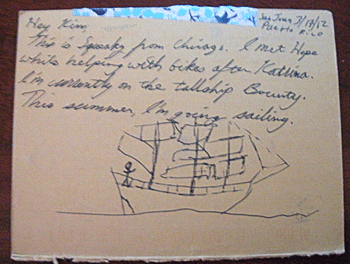 San Juan 3/13/12
Puerto Rico
Hey Kim
This is Squeaky from Chicago. I met Hope
while helping with bikes after Katrina.
I'm currently on the tallship Bounty.
This summer, I'm going sailing.